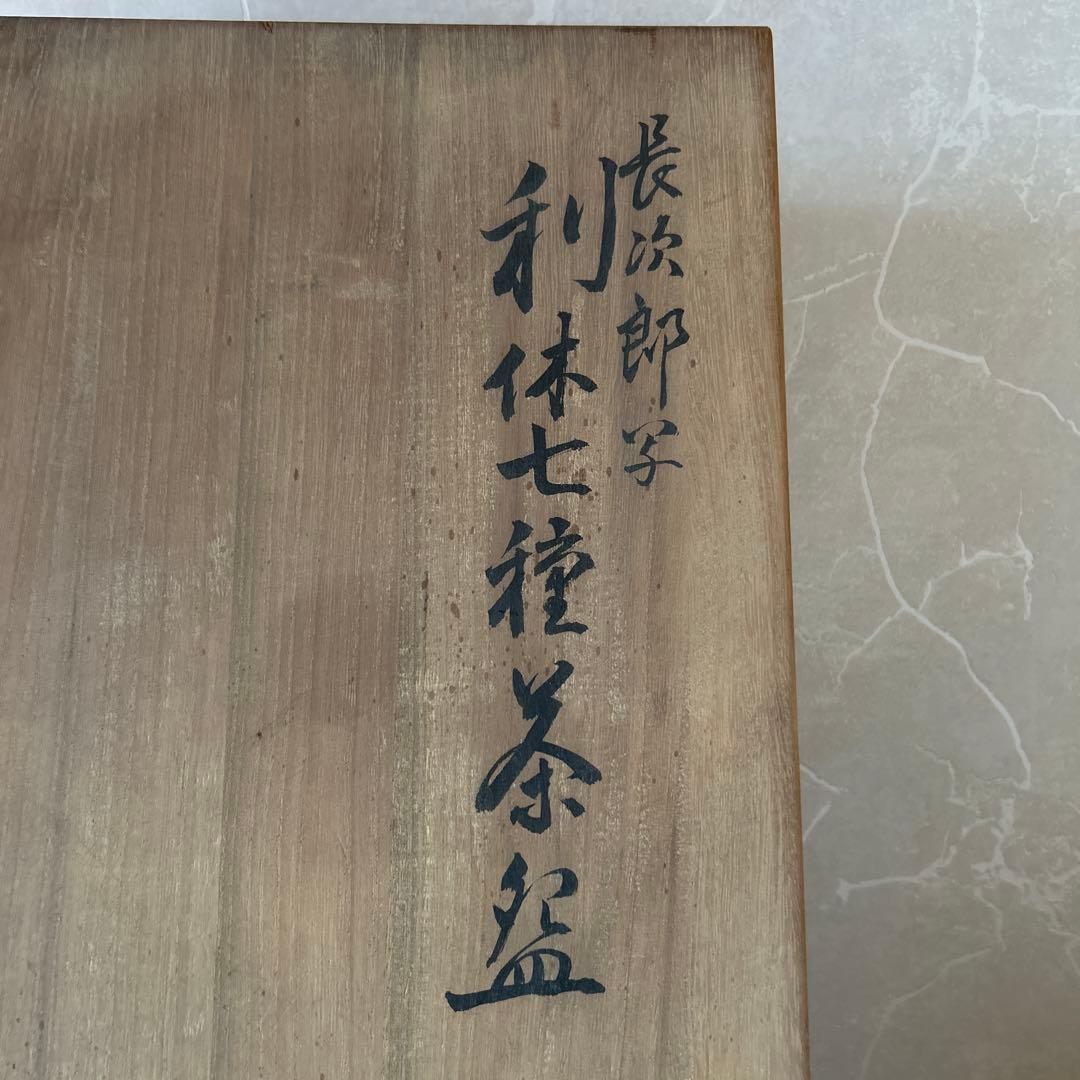 長次郎写
利休七種茶盌